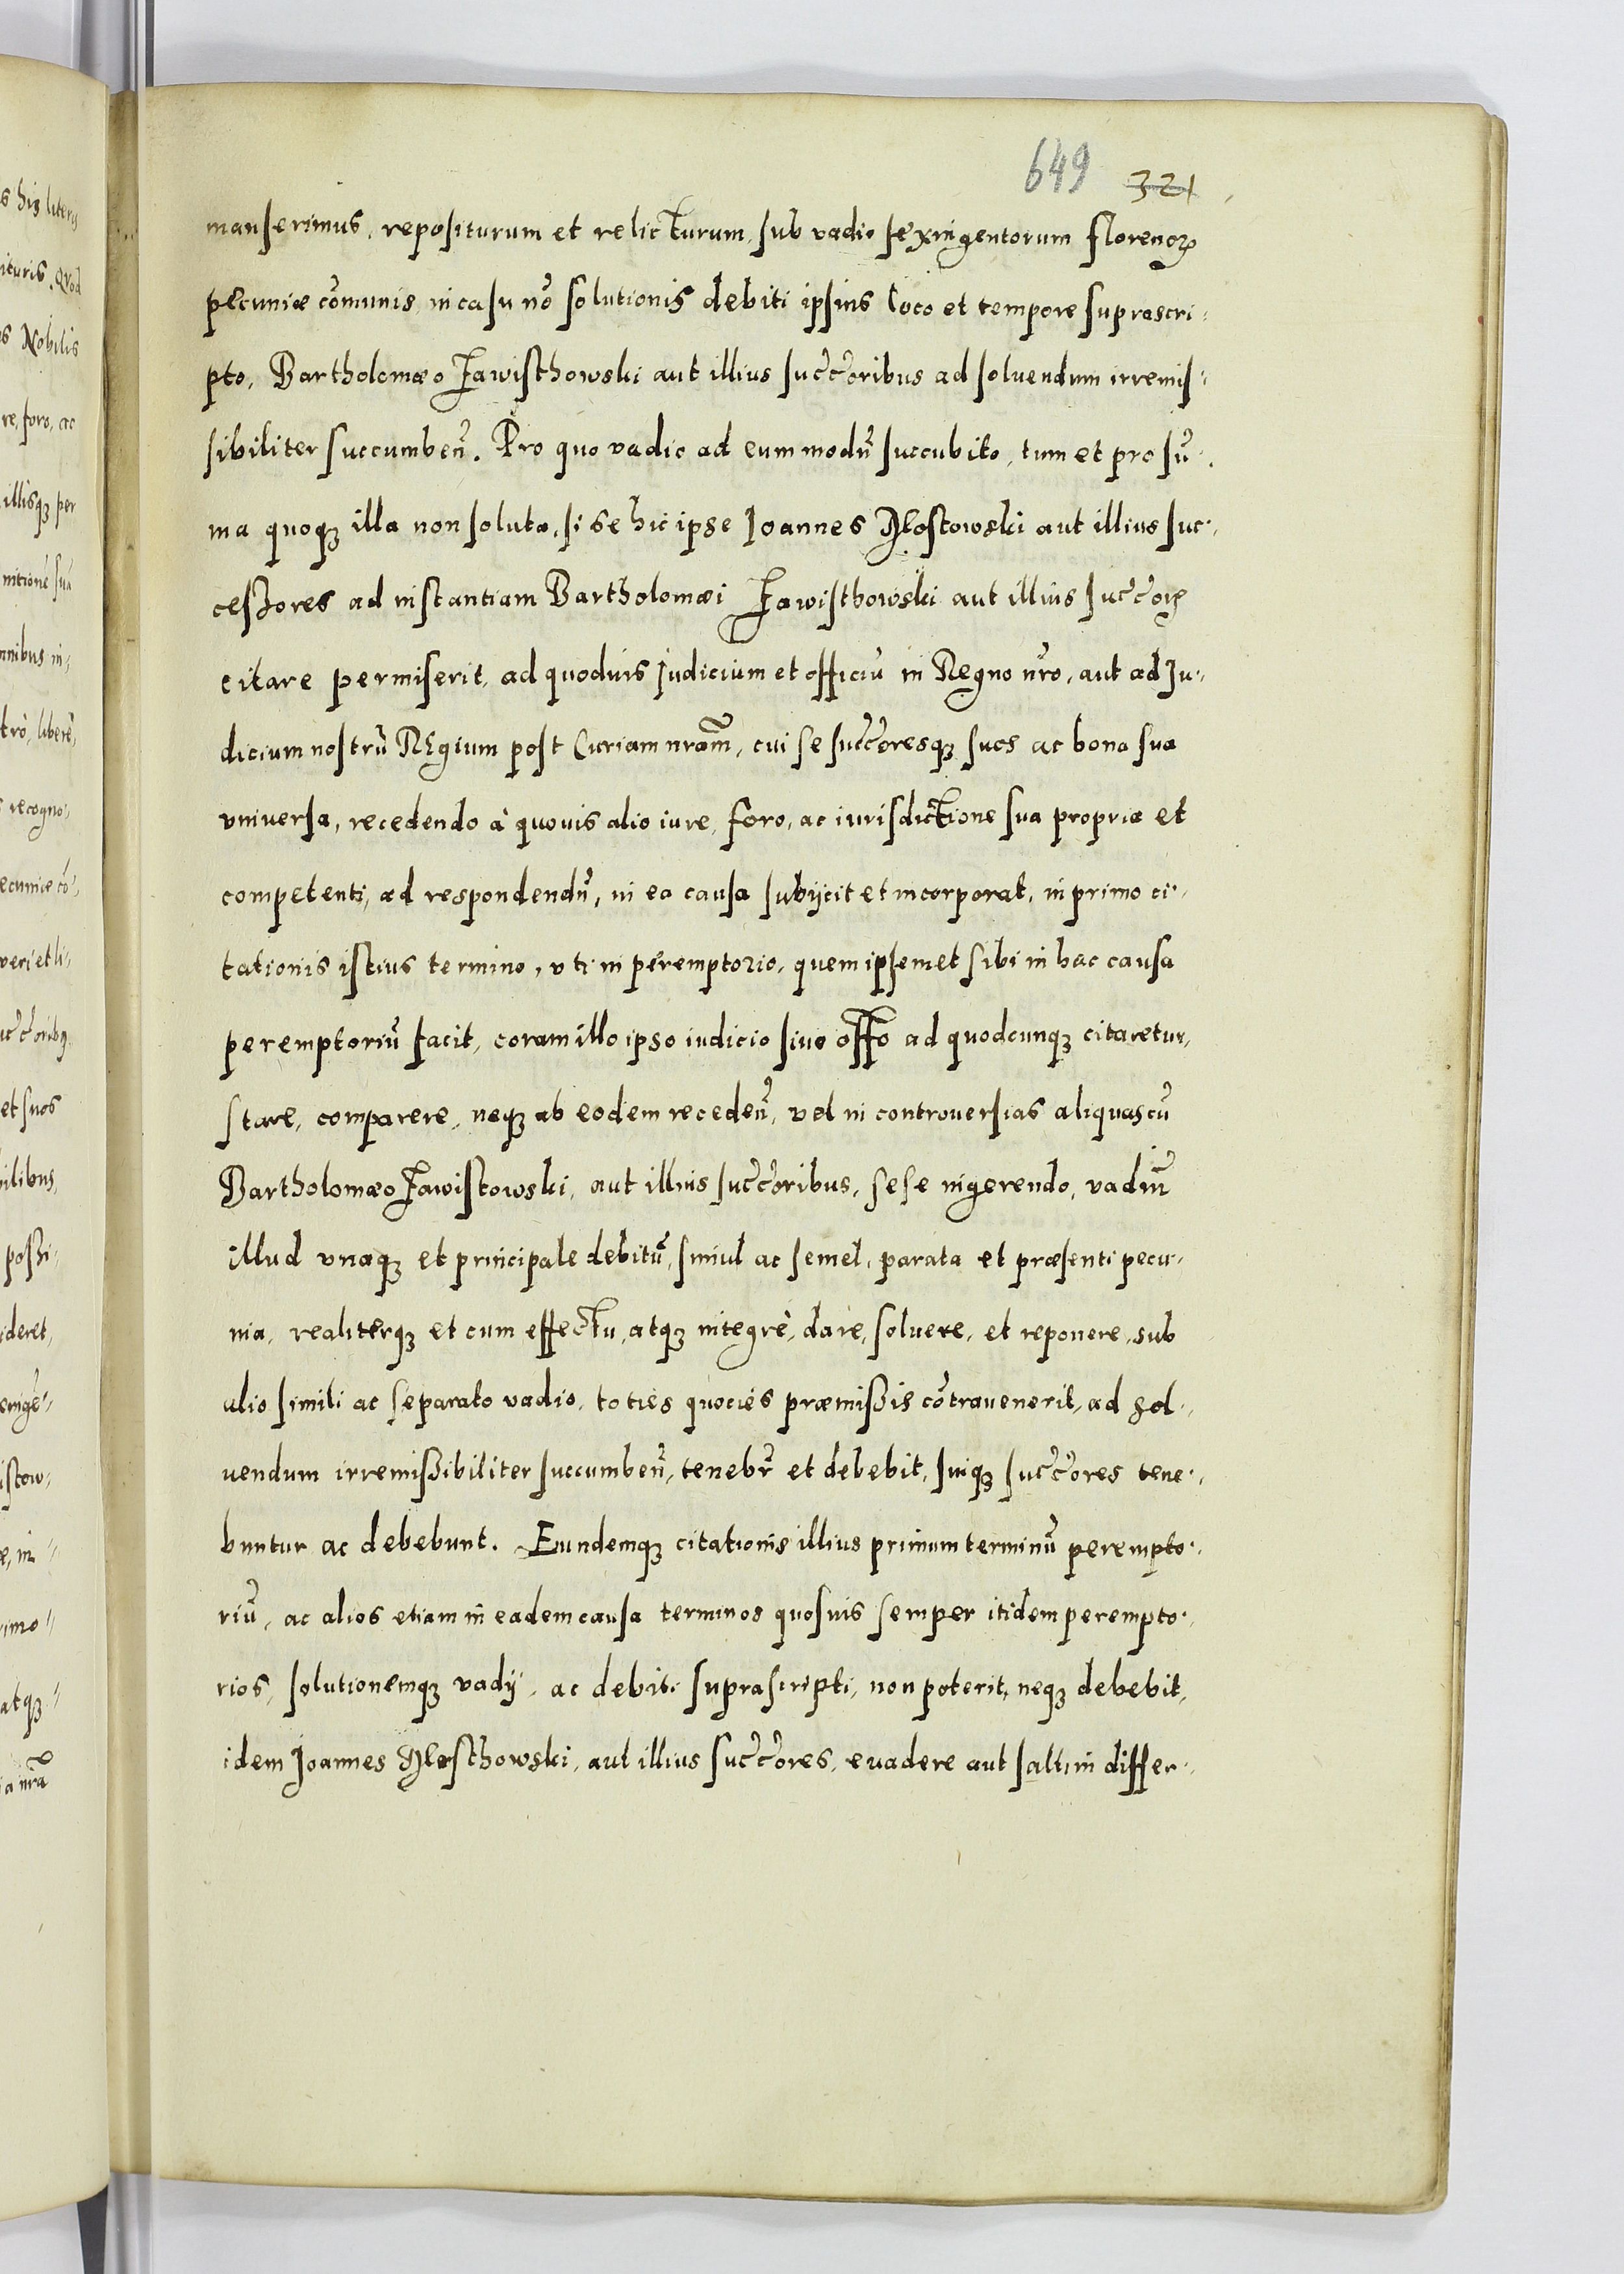 649 321
manserimus, repositurum et relicturum, sub vadio sexingentorum florenoꝝ
pecuniæ cōmunis, in casu nō solutionis debiti ipsius loco et tempore suprascri-
pto, Bartholomæo Zawisthowski aut illius succ̄oribus ad soluendum irremis-
sibiliter succumbeñ. Pro quo vadio ad eum modū succubito, tum et pro sū-
ma quoqꝫ illa non soluta, si se hic ipse Joannes Chostowski aut illius suc-
cessores ad instantiam Bartholomæi Zawisthowski aut illius succ̄oꝝ
citare permiserit, ad quoduis Judicium et officiū in Regno nr̄o, aut ad Ju-
dicium nostrū Regium post Curiam nram̄, cui se succ̄oresqꝫ suos ac bona sua
vniuersa, recedendo à quouis alio iure, foro, ac iurisdictione sua propria et
competenti, ad respondendū, in ea causa subijcit et incorporat, in primo ci-
tationis istius termino, vti in peremptorio, quem ipsemet sibi in hac causa
peremptoriū facit, coram illo ipso iudicio siue offo ad quodcunqꝫ citaretur,
stare, comparere, neqꝫ ab eodem recedeñ, vel in controuersias aliquas cū
Bartholomæo Zawistowski, aut illius succ̄oribus, sese ingerendo, vadiū
illud vnaqꝫ et principale debitū, simul ac semel, parata et præsenti pecu-
nia, realiterqꝫ et cum effectu, atqꝫ integrè, dare, soluere, et reponere, sub
alio simili ac separato vadio, toties quocies præmißis cōtrauenerit, ad sol-
uendum irremißibiliter succumbeñ, tenebr̄ et debebit, suiqꝫ succ̄ores tene-
buntur ac debebunt. Eundemqꝫ citationis illius primum terminū perempto-
riū, ac alios etiam in eadem causa terminos quosuis semper itidem perempto-
rios, solutionemqꝫ vadij, ac debiti suprascripti, non poterit, neqꝫ debebit,
idem Joannes Chosthowski, aut illius succ̄ores, euadere aut saltim differ-